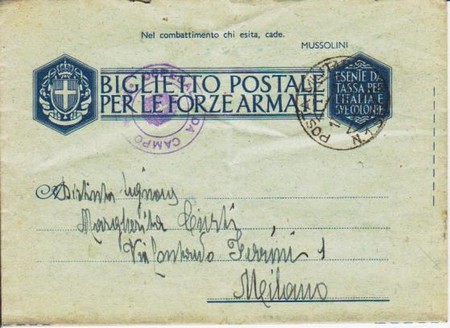 Nel combattimento chi esita, cade.
MUSSOLINI
BIGLIETTO POSTALE
PER LE FORZE ARMATE
ESENTE DA
TASSA PER
L'ITALIA E
SUE COLONIE
DA CAMPO
POSTA
N. 1
A Distinta Signora
Margherita Curti
Via Contardo Ferrini 1
Milano